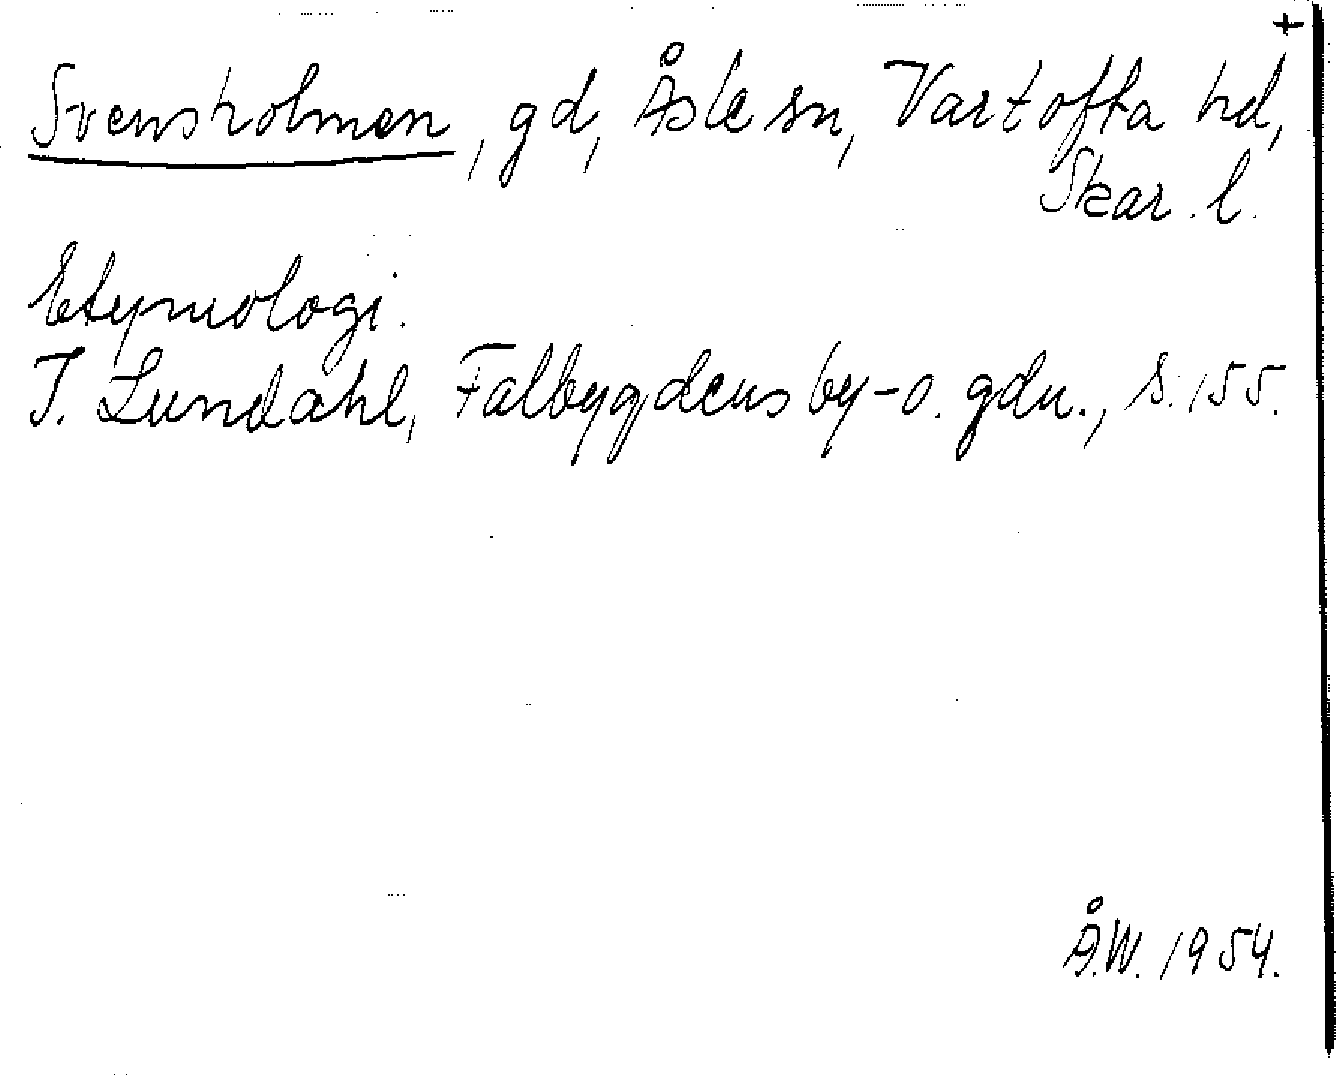 +
Svensholmen, gd, Åsle sn, Vartofta hd,
Skar. l.
Etymologi.
I. Lundahl, Falbygdens by- o. gdn., s. 155.
Å.W. 1954.